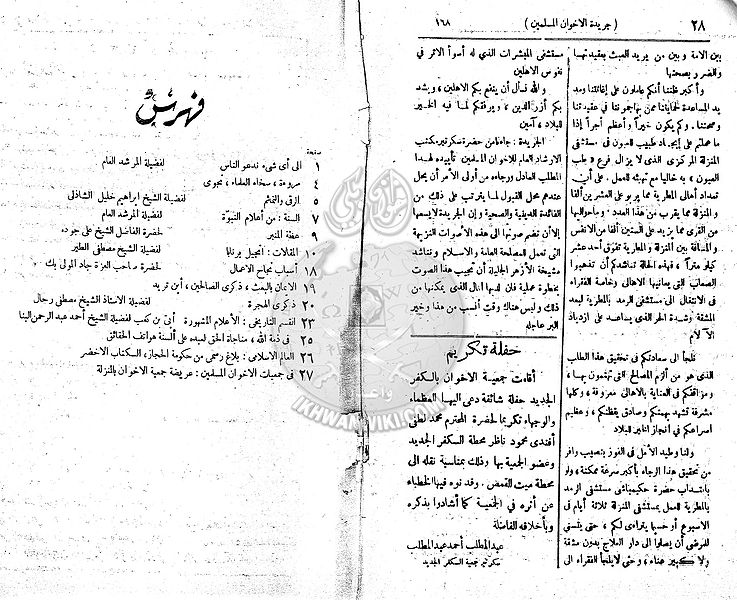 ٢٨
( جريدة الاخوان المسلمين )
١٦٨
بين الامة وبين من يريد العبث بعقيدتها
والضرر بصحتها
وأكبر ظننا أنكم عاملون على إغاثتنا ومد
يد المساعدة لحمايتنا ممن يهاجموننا في عقيدتنا
وصحتنا . وكم يكون خيراً وأعظم أجراً إذا
ما عملتم على إيجاد طبيب للعيون فى مستشفى
المنزلة المركزى الذى لا يزال فرع « طب
العيون » به خاليا مع تهيئته للعمل . على أن
تعداد أهالى المطرية مما يربو على العشرين ألفا
والمنزلة مما يقرب من هذا العدد . وما حواليها
من القرى مما يزيد على الستين ألفا من الانفس
والمسافة بين المنزلة والمطرية تفوق أحد عشر
كيلو متراً ، فهذه الحالة تناشدكم أن تذهبوا
الصعاب التى يعانيها الاهالى وخاصة الفقراء
فى الانتقال الى مستشفى الرمد بالمطرية لبعد
المشقة وشدة الحر الذى يساعد على ازدياد
الآلام
نلجأ الى سعادتكم فى تحقيق هذا الطلب
الذى هو من ألزم المصالح التى تهتمون بها ،
ومواقفكم فى العناية بالاهالى معروفة ، وكلها
مشرفة تشهد بهمتكم وصادق يقظتكم ، وعظيم
اسراعكم فى انجاز الخير للبلاد
ولنا وطيد الأمل فى الفوز بنصيب وافر
من تحقيق هذا الرجاء بأكبر سرعة ممكنة ، ولو
بانتداب حضرة حكيمباشى مستشفى الرمد
بالمطرية للعمل بمستشفى المنزلة ثلاثة أيام فى
الاسبوع أو حسبما يتراءى لكم ، حتى يتسنى
للمرضى أن يصلوا الى دار العلاج بدون مشقة
ولا كبير عناء ، وحتى لا يلجأ الفقراء الى
مستشفى المبشرات الذى له أسوأ الاثر فى
نفوس الاهلين
والله نسأل أن ينفع بكم الاهلين ، ويشد
بكم أزر الدين ، ويوفقكم لما فيه الخير
للبلاد ، آمين
الجريدة : جاءنا من حضرة سكرتير مكتب
الارشاد العام للاخوان المسلمين تأييده لهذا
المطلب العادل ورجاءه من أولى الأمر أن يحل
عندهم محل القبول لما يترتب على ذلك من
الفائدة الدينية والصحية وإن الجريدة لا يسعها
إلا أن تضم صوتها الى هذه الأصوات النزيهة
التى تعمل للمصلحة العامة والاسلام وتناشد
مشيخة الأزهر الجليلة أن تجيب هذا الصوت
بخطوة عملية فان لديها المال الذى يمكنها من
ذلك وليس هناك وقت أنسب من هذا وخير
البر عاجله
حفلة تكريم
أقامت جمعية الاخوان بالكفر
الجديد حفلة شائقة دعى اليها العظماء
والوجهاء تكريما لحضرة المحترم محمد لطفى
أفندى محمود ناظر محطة الكفر الجديد
وعضو الجمعية بها وذلك بمناسبة نقله الى
محطة ميت القمص . وقد نوه فيها الخطباء
عن أثره فى الجمعية كما أشادوا بذكره
وبأخلاقه الفاضلة
عبد المطلب أحمد عبد المطلب
سكرتير جمعية الكفر الجديد
فهرس
صفحة
١ الى أى شىء ندعو الناس لفضيلة المرشد العام
٤ مروءة ، سخاء العلماء ، نجوى
٥ الرق والتمائم لفضيلة الشيخ ابراهيم خليل الشاذلى
٧ السنة : من أعلام النبوة لفضيلة المرشد العام
٩ عظة المنبر لحضرة الفاضل الشيخ على جوده
١٠ المقالات : انجيل برنابا لفضيلة الشيخ مصطفى الطير
١٨ أسباب نجاح الاعمال لحضرة صاحب العزة جاد المولى بك
١٩ الايمان بالبعث ، ذكرى الصالحين ، أين تريد
٢٠ ذكرى الهجرة لفضيلة الاستاذ الشيخ مصطفى رجال
٢٣ القسم التاريخى : الأعلام المشهورة أبى بن كعب لفضيلة الشيخ أحمد عبد الرحمن البنا
٢٥ فى ذمة الله ، مناجاة الحق لعبده على ألسنة هواتف الحقائق
٢٦ العالم الاسلامى : بلاغ رسمى من حكومة الحجاز ، الكتاب الاخضر
٢٧ فى جمعيات الاخوان المسلمين : عريضة جمعية الاخوان بالمنزلة
IKHWANWIKI.COM